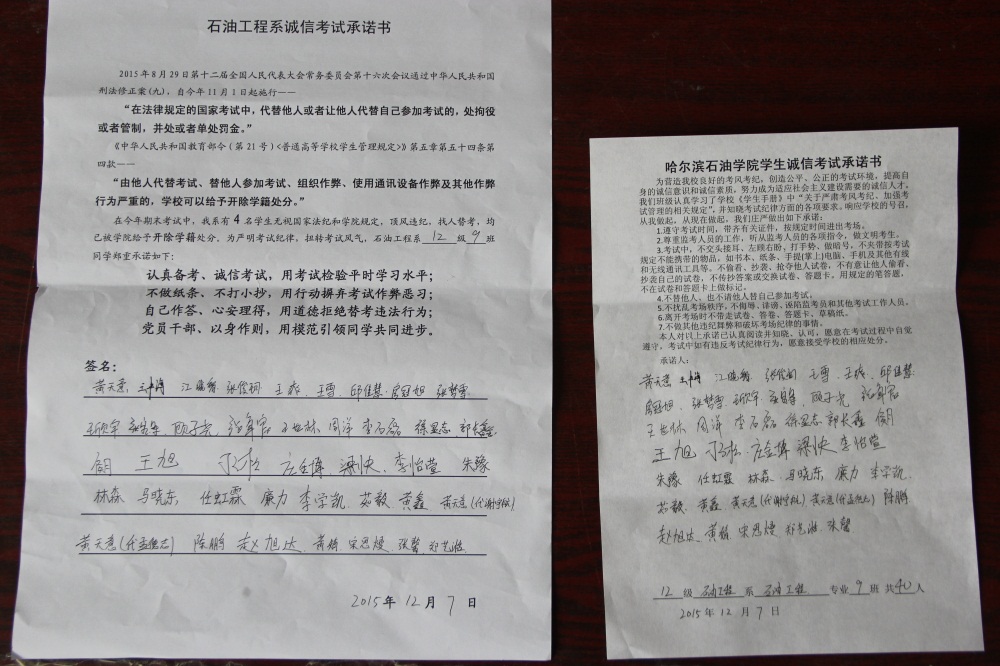 石油工程系诚信考试承诺书
2015年8月29日第十二届全国人民代表大会常务委员会第十六次会议通过中华人民共和国
刑法修正案(九)，自今年11月1日起施行——
“在法律规定的国家考试中，代替他人或者让他人代替自己参加考试的，处拘役
或者管制，并处或者单处罚金。”
《中华人民共和国教育部令（第21号）<普通高等学校学生管理规定>》第五章第五十四条第
四款——
“由他人代替考试、替他人参加考试、组织作弊、使用通讯设备作弊及其他作弊
行为严重的，学校可以给予开除学籍处分。”
在今年期末考试中，我系有4名学生无视国家法纪和学院规定，顶风违纪，找人替考，均
已被学院给予开除学籍处分，为严明考试纪律，扭转考试风气，石油工程系 12 级 9 班
同学郑重承诺如下：
认真备考、诚信考试，用考试检验平时学习水平；
不做纸条、不打小抄，用行动摒弃考试作弊恶习；
自己作答、心安理得，用道德拒绝替考违法行为；
党员干部、以身作则，用模范引领同学共同进步。
签名：
黄天意 江晓 张俊珂 王森 王雪 邱佳慧 张梦雪
王世林 周洋 李石磊 徐显志 郭长鑫
王旭 庄金博 梁快 李怡萱 朱豫
林森 马晓东 任虹霖 康力 李学凯 苏毅 黄鑫 黄天意(代谢学松)
黄天意(代孟德志) 陈鹏 赵旭达 黄赫 宋思煜 张馨 郑艺
2015年12月7日
哈尔滨石油学院学生诚信考试承诺书
为营造我校良好的考风考纪，创造公平、公正的考试环境，提高自
身的诚信意识和诚信素质，努力成为适应社会主义建设需要的诚信人才，
我们班级认真学习了学校《学生手册》中“关于严肃考风考纪、加强考
试管理的相关规定”，并知晓考试纪律方面的各项要求，响应学校的号召，
从我做起，从现在做起，我们庄严做出如下承诺：
1.遵守考试时间，带齐有关证件，按规定时间进出考场。
2.尊重监考人员的工作，听从监考人员的各项指令，做文明考生。
3.考试中，不交头接耳、左顾右盼、打手势、做暗号，不夹带按考试
规定不能携带的物品，如书本、纸条、手提(掌上)电脑、手机及其他有线
和无线通讯工具等。不偷看、抄袭、抢夺他人试卷，不有意让他人偷看、
抄袭自己的试卷，不传抄答案或交换试卷、答题卡，用规定的笔答题，
不在试卷和答题卡上做标记。
4.不替他人、也不请他人替自己参加考试。
5.不扰乱考场秩序，不侮辱、诽谤、诬陷监考员和其他考试工作人员。
6.离开考场时不带走试卷、答卷、答题卡、草稿纸。
7.不做其他违纪舞弊和破坏考场纪律的事情。
本人对以上承诺已认真阅读并知晓、认可，愿意在考试过程中自觉
遵守，考试中如有违反考试纪律行为，愿意接受学校的相应处分。
承诺人：
黄天意 江晓 张俊珂 王雪 王森 邱佳慧
张梦雪
王世林 周洋 李石磊 徐显志 郭长鑫
王旭 庄金博 梁快 李怡萱
朱豫 任虹霖 林森 马晓东 康力 李学凯
苏毅 黄鑫 黄天意(代谢学松) 黄天意(代孟德志) 陈鹏
赵旭达 黄赫 宋思煜 郑艺 张馨
12 级 石油工程 系 石油工程 专业 9 班 共40人
2015年12月7日